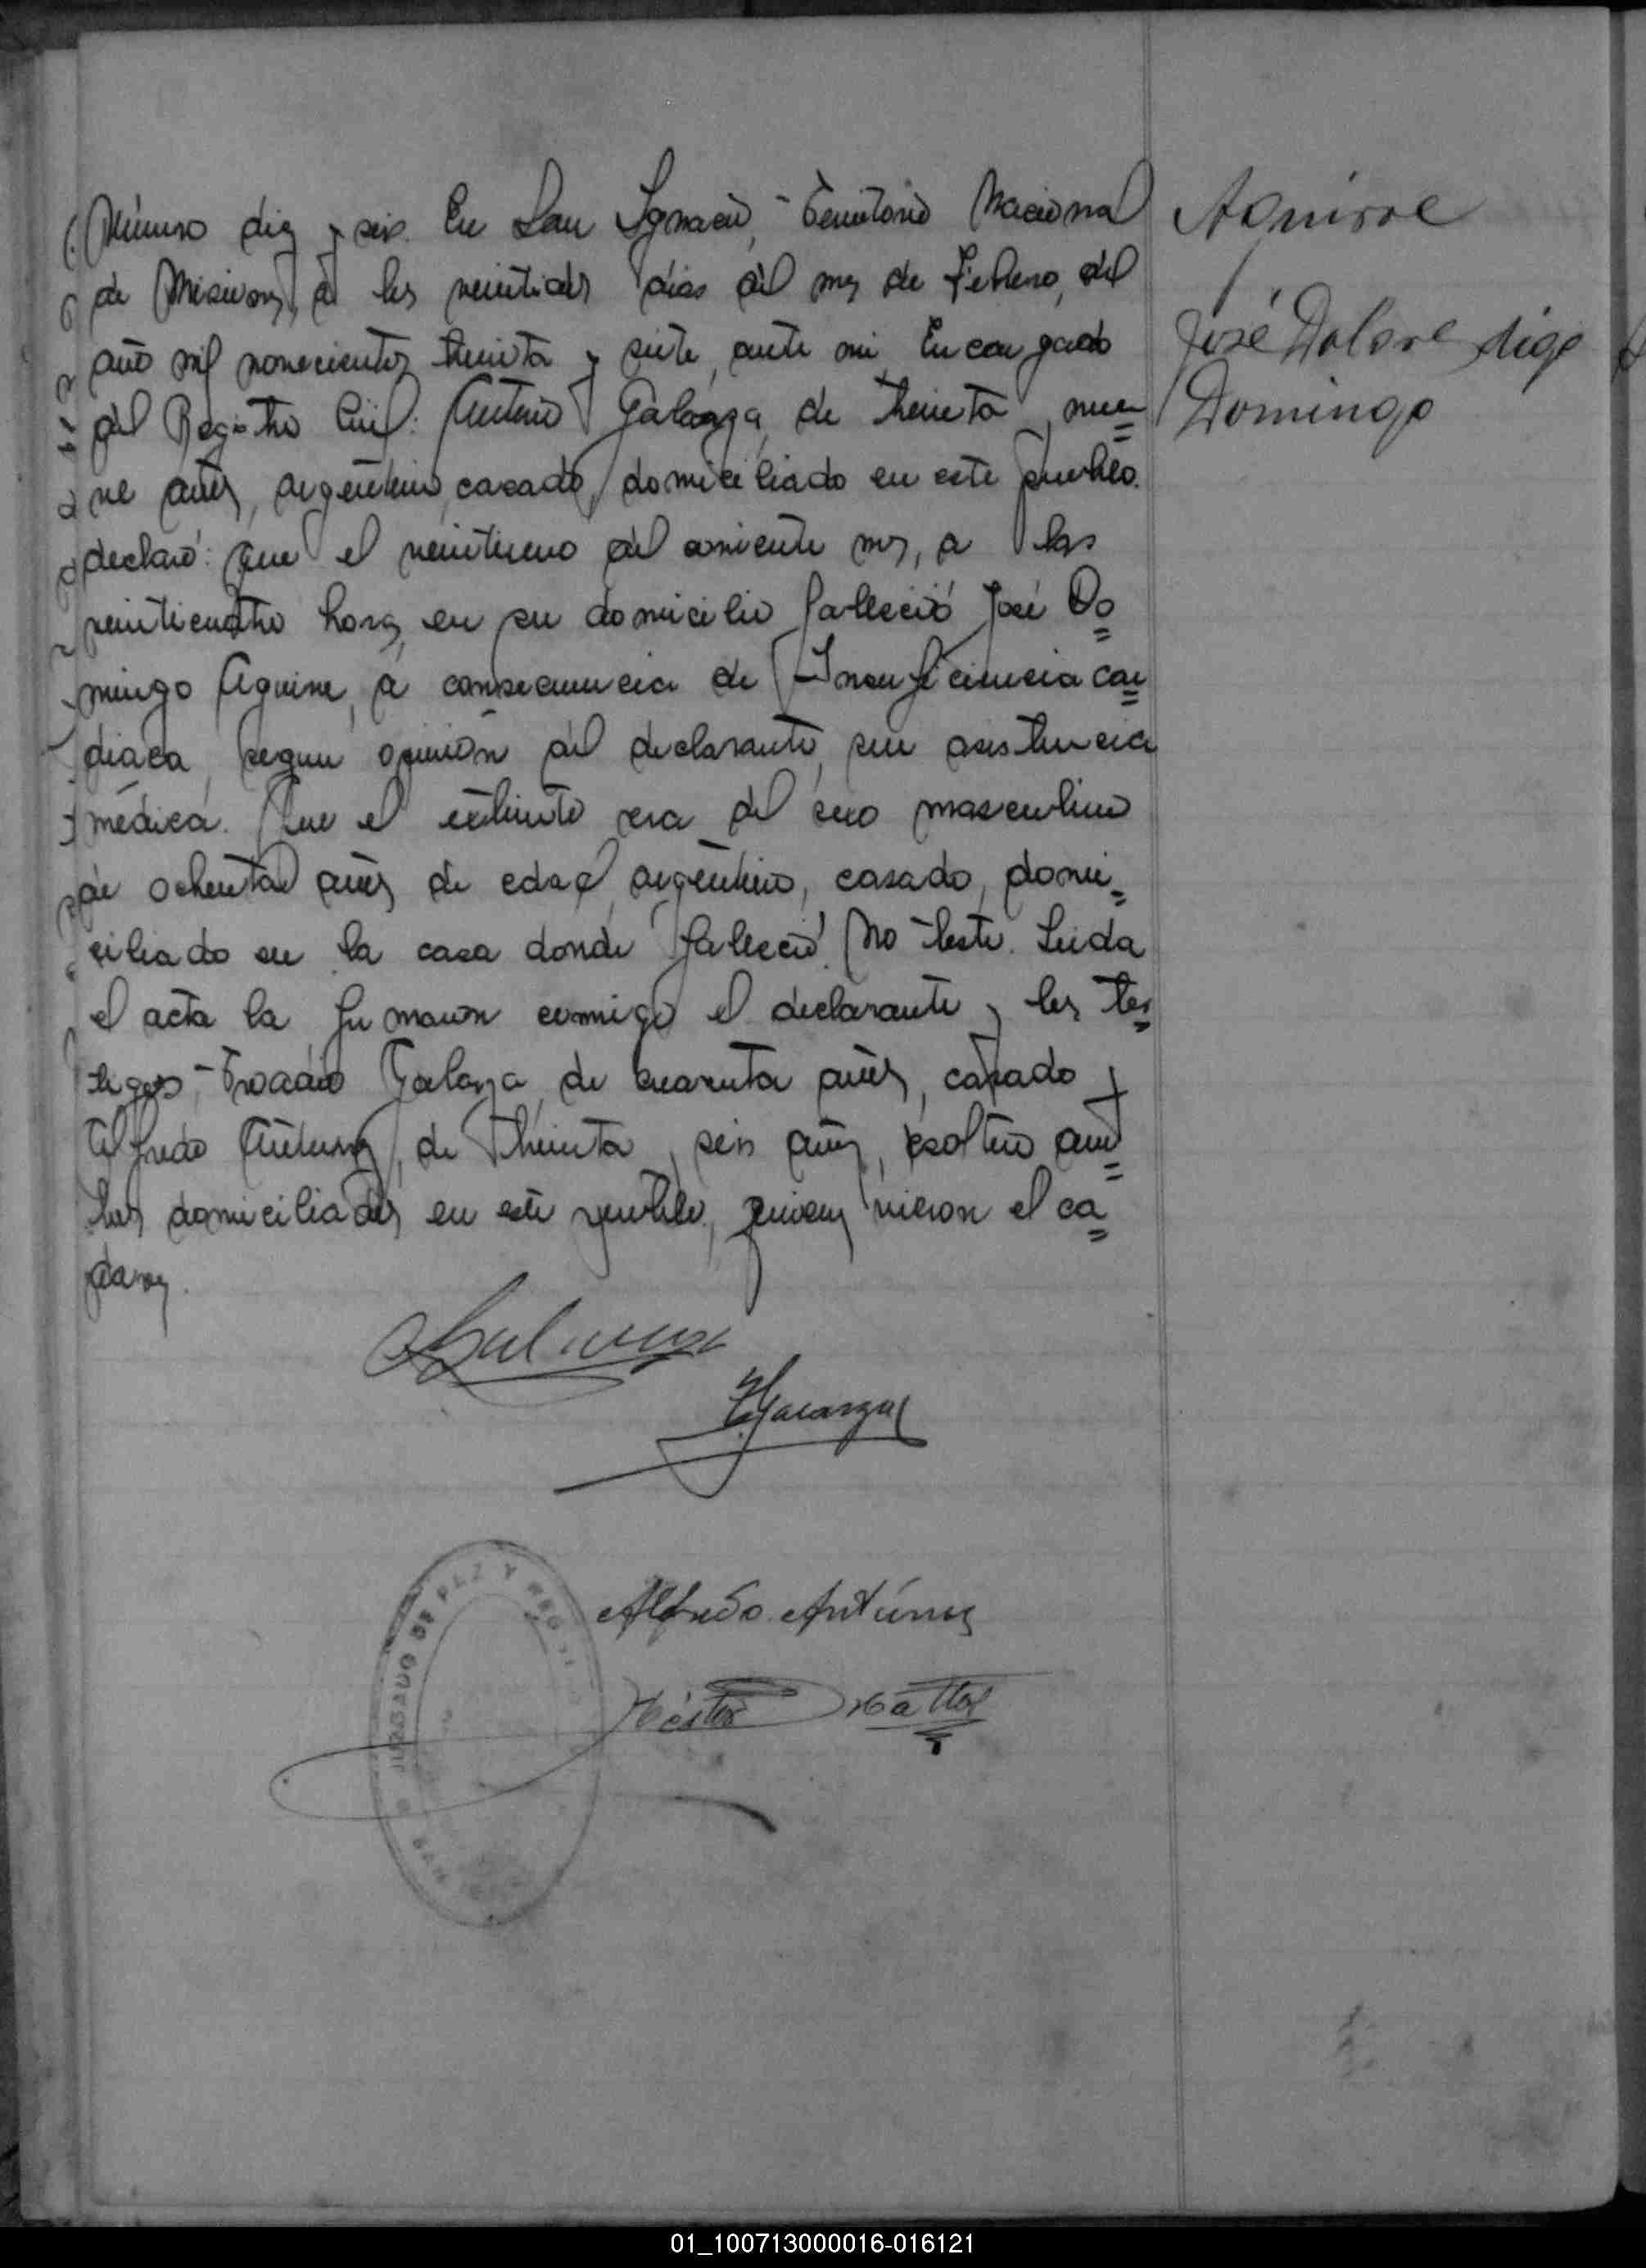 Número diez y seis. En San Ignacio, Territorio Nacional
de Misiones, a los veintidós dias del mes de Febrero, del
año mil novecientos treinta y siete, ante mi Encargado
del Registro Civil: Antonio Galarza, de treinta y nue=
ve años, argentino, casado, domiciliado en este pueblo.
declaró: que el veintiuno del corriente mes, a las
veinticuatro horas, en su domicilio falleció José Do=
mingo Aguirre, a consecuencia de Insuficiencia car=
diaca, segun opinión del declarante, sin asistencia
médica. Que el extinto era del sexo masculino
de ochenta años de edad, argentino, casado, domi=
ciliado en la casa donde falleció. No testó. Leida
el acta la firmaron conmigo el declarante y los tes=
tigos Galarza, de cuarenta años, casado y
Alfredo Antunez, de treinta y seis años, soltero am=
bos domiciliados en este pueblo, quienes vieron el ca=
daver.
Aguirre
José Dolore digo
Domingo
Alfredo Antúnez
Héstor Mattos
JUZGADO DE PAZ Y
SAN
01_100713000016-016121